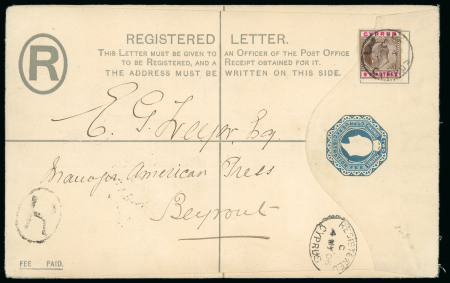 REGISTERED LETTER.
THIS LETTER MUST BE GIVEN TO AN OFFICER OF THE POST OFFICE
TO BE REGISTERED, AND A RECEIPT OBTAINED FOR IT.
THE ADDRESS MUST BE WRITTEN ON THIS SIDE.
R
CYPRUS
E. G. Freyer, Esq.
Manager American Press
Beyrout
REGISTERED
CYPRUS
FEE PAID.